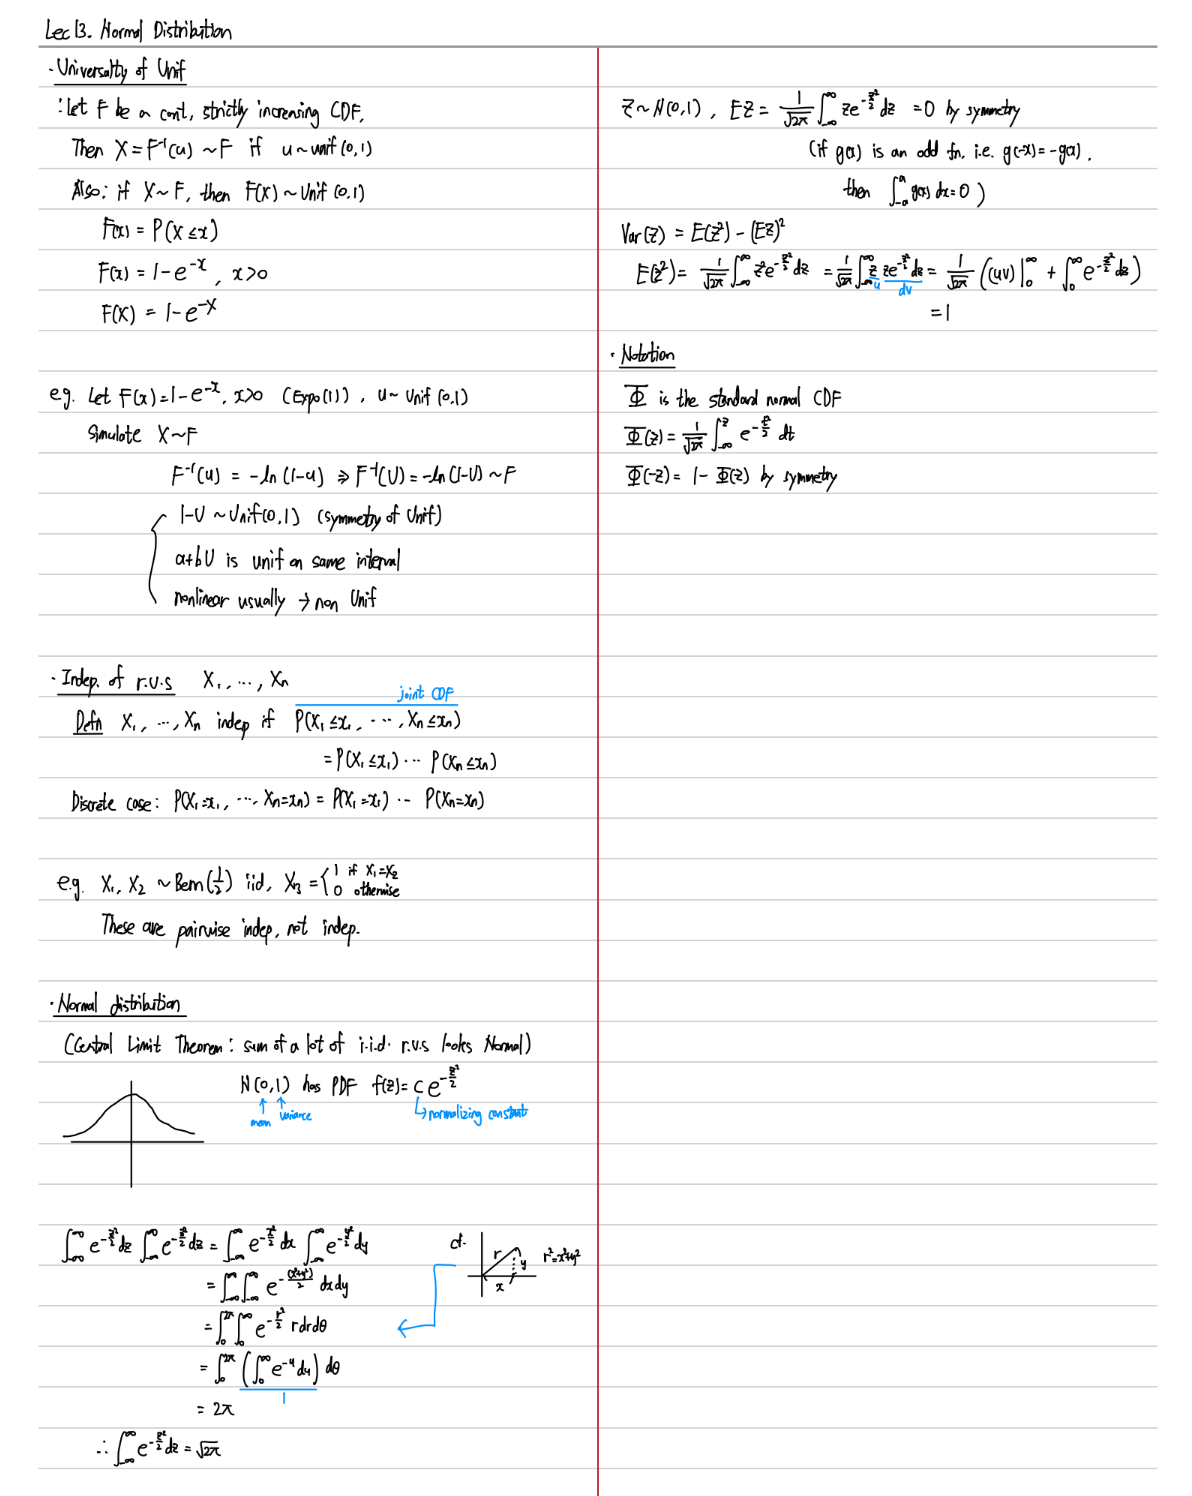 Lec 13. Normal Distribution
· Universality of Unif
: let F be a cont, strictly increasing CDF.
Then X = F⁻¹(u) ~ F if u ~ unif (0,1)
Also: if X ~ F, then F(X) ~ Unif (0,1)
F(x) = P(X ≤ x)
F(x) = 1-e^{-x}, x>0
F(X) = 1-e^{-X}
e.g. Let F(x) = 1-e^{-x}, x>0 (Expo(1)), u ~ Unif (0,1)
Simulate X ~ F
F⁻¹(u) = -ln (1-u) ⇒ F⁻¹(U) = -ln (1-U) ~ F
1-U ~ Unif(0,1) (symmetry of Unif)
a+bU is unif on same interval
nonlinear usually → non Unif
· Indep. of r.v.s X₁, ..., Xₙ
joint CDF
Defn X₁, ..., Xₙ indep if P(X₁ ≤ x₁, ..., Xₙ ≤ xₙ)
= P(X₁ ≤ x₁) ... P(Xₙ ≤ xₙ)
Discrete case: P(X₁=x₁, ..., Xₙ=xₙ) = P(X₁=x₁) ... P(Xₙ=xₙ)
e.g. X₁, X₂ ~ Bern(1/2) iid, X₃ = { 1 if X₁=X₂
0 otherwise
These are pairwise indep, not indep.
· Normal distribution
(Central Limit Theorem: sum of a lot of i.i.d. r.v.s looks Normal)
N(0,1) has PDF f(z) = c e^{-z²/2}
mean variance ↳ normalizing constant
∫_{-∞}^{∞} e^{-z²/2} dz ∫_{-∞}^{∞} e^{-z²/2} dz = ∫_{-∞}^{∞} e^{-x²/2} dx ∫_{-∞}^{∞} e^{-y²/2} dy
cf. r y x r²=x²+y²
= ∫_{-∞}^{∞} ∫_{-∞}^{∞} e^{-(x²+y²)/2} dxdy
= ∫_0^{2π} ∫_0^{∞} e^{-r²/2} r dr dθ
= ∫_0^{2π} (∫_0^{∞} e^{-u} du) dθ
1
= 2π
∴ ∫_{-∞}^{∞} e^{-z²/2} dz = √2π
Z ~ N(0,1), EZ = 1/√2π ∫_{-∞}^{∞} z e^{-z²/2} dz = 0 by symmetry
(if g(x) is an odd fn, i.e. g(-x) = -g(x),
then ∫_{-a}^{a} g(x) dx = 0)
Var(Z) = E(Z²) - (EZ)²
E(Z²) = 1/√2π ∫_{-∞}^{∞} z² e^{-z²/2} dz = 1/√2π ∫_{-∞}^{∞} z z e^{-z²/2} dz = 1/√2π ((uv)|_0^{∞} + ∫_0^{∞} e^{-z²/2} dz)
u dv
= 1
· Notation
Φ is the standard normal CDF
Φ(z) = 1/√2π ∫_{-∞}^{z} e^{-t²/2} dt
Φ(-z) = 1 - Φ(z) by symmetry